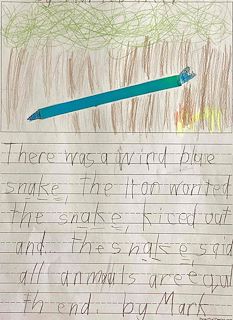 There was a wind blue
snake. the lion wanted
the snake, kiced out
and the shake said
all anmals are equl
th end by Mark